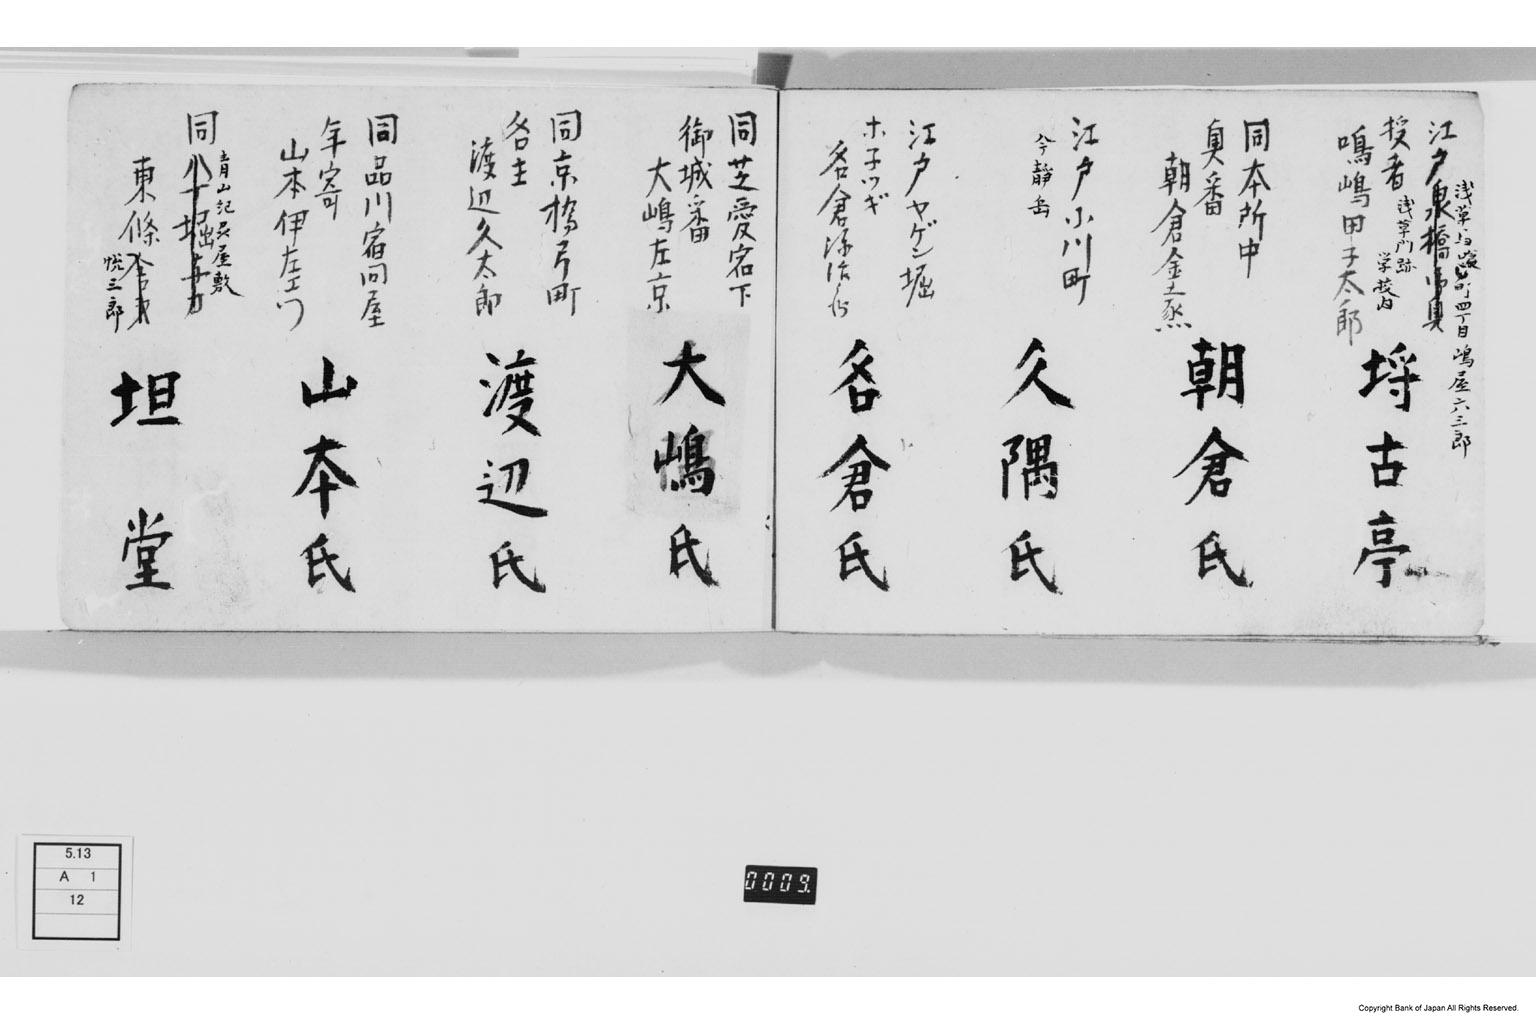 浅草 町四丁目 嶋屋六三郎
江戸泉橋
浅草門跡
学校内
授者
鳴嶋甲子太郎
埓古亭
同本所中
奥番
朝倉金蒸
朝倉氏
江戸小川町
今静岳
久隅氏
江戸ヤゲン堀
ホネツギ
名倉
名倉氏
同芝愛宕下
御城番
大嶋左京
大嶋氏
同京橋弓町
名主
渡辺久太郎
渡辺氏
同品川宿問屋
年寄
山本伊左エ門
山本氏
青山 長屋敷
同 堀
東條
悦三郎
坦堂
5.13
A 1
12
0009.
Copyright Bank of Japan All Rights Reserved.